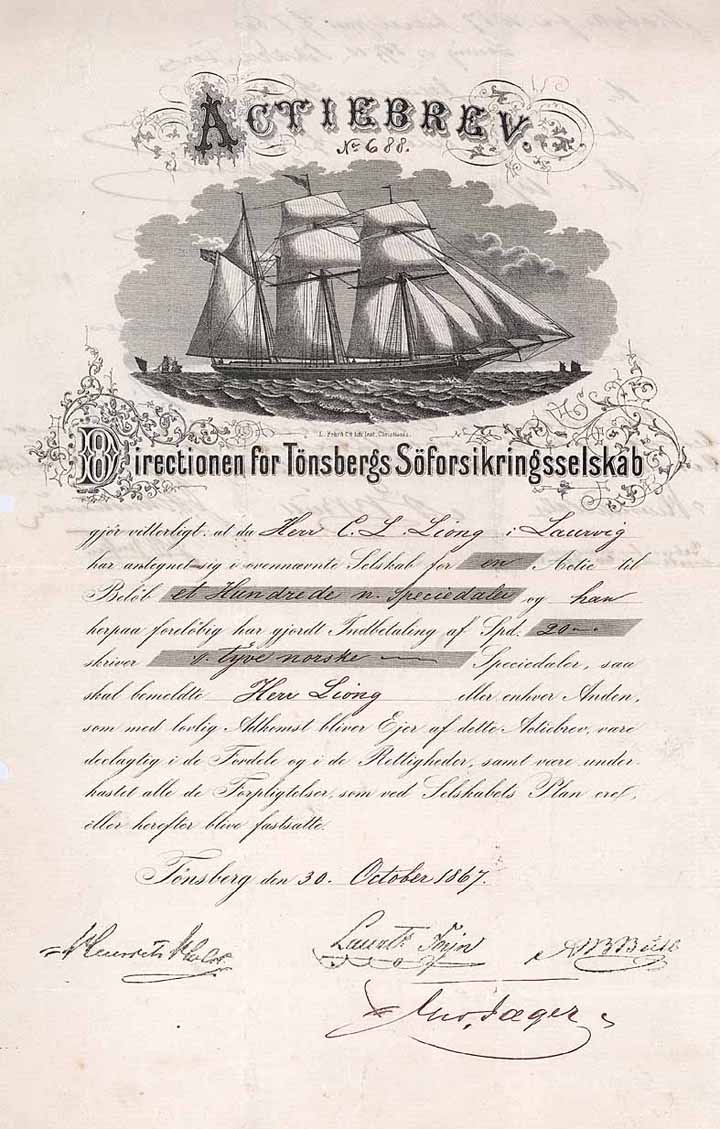 ACTIEBREV.
No 688.
L. Fehr & C° lith. Inst. Christiania.
Directionen for Tönsbergs Söforsikringsselskab
gjör vitterligt: at da Herr C. L. Liöng i Laurvig
har antegnet sig i ovennævnte Selskab for en Actie til
Belöb et Hundrede n. Speciedaler og han
herpaa foreløbig har gjordt Indbetaling af Spd. 20
skriver tyve norske Speciedaler, saa
skal bemeldte Herr Liöng eller enhver Anden,
som med lovlig Adkomst bliver Ejer af dette Actiebrev, være
deelagtig i de Fordele og i de Rettigheder, samt være under-
kastet alle de Forpligtelser, som ved Selskabets Plan ere,
eller herefter blive fastsatte.
Tönsberg den 30. October 1867.
Jæger